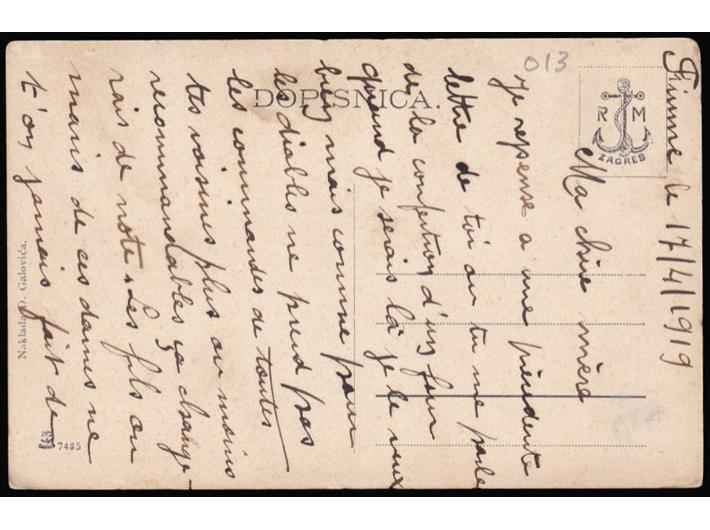 013
DOPISNICA.
R M
ZAGREB
Naklada D. Galovića.
7485
Fiume le 17/4/1919
Ma chère mère
Je repense a une précedente
lettre de toi ou tu me parle
de la confection d'un four
quand je serais là je le veux
bien mais comme pour
les diables ne prend pas
les commandes de toutes
tes voisines plus ou moins
recommandables ça change-
rais de note. Les fils ou
maris de ces dames ne
t'on jamais fait de